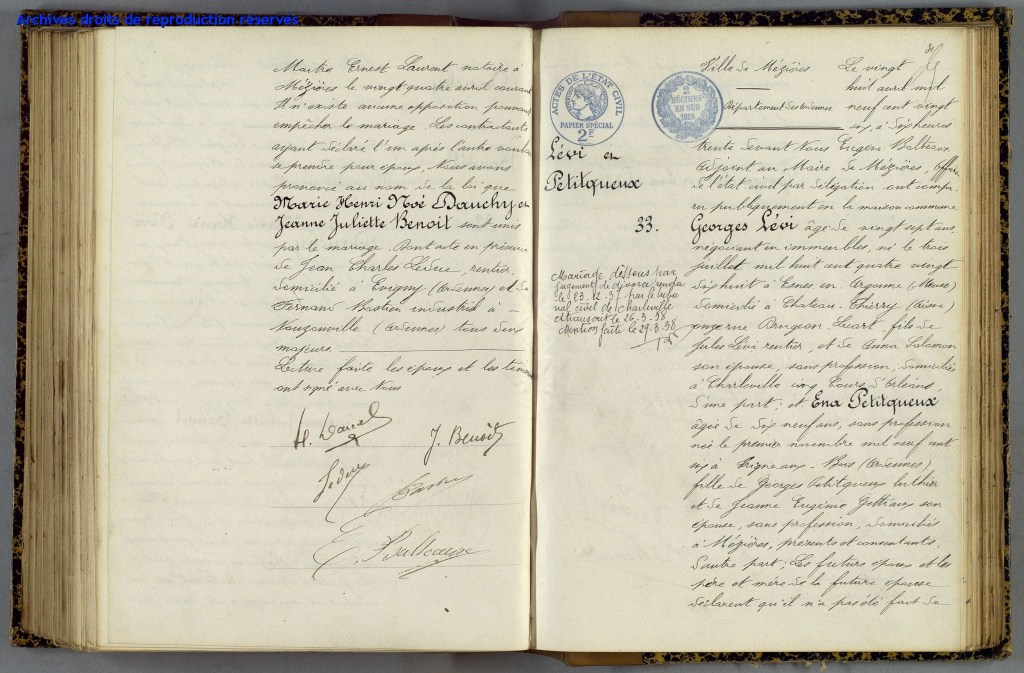 Archives droits de reproduction réservés
Maitre Ernest Laurent notaire à
Mézières le vingt quatre avril courant
Il n'existe aucune opposition pouvant
empêcher le mariage. Les contractants
ayant déclaré l'un après l'autre vouloir
se prendre pour époux, Nous avons
prononcé au nom de la loi que
Marie Henri Noé Dauchy et
Jeanne Juliette Benoit sont unis
par le mariage. Dont acte en présence
de Jean Charles Leduc, rentier,
domicilié à Evigny (Ardennes) et de
Fernand Bastien industriel à
Nouzonville (Ardennes) tous deux
majeurs.
Lecture faite les époux et les témoins
ont signé avec Nous
J. Benoit
Leduc
E. Balteaux
ACTES DE L'ÉTAT CIVIL
PAPIER SPÉCIAL
2F
2
DÉCIMES
EN SUS
1924
Lévi et
Petitqueux
33.
Mariage dissous par
jugement de divorce rendu
le 23.12.37 par le tribu
nal civil de Charleville
transcrit le 26.3.38
Mention faite le 29.3.38
Ville de Mézières
Département des Ardennes
Le vingt
huit avril mil
neuf cent vingt
six, à dix heures
trente devant Nous Eugène Balteaux
Adjoint au Maire de Mézières, Officier
de l'état civil par délégation ont compa-
ru publiquement en la maison commune
Georges Lévi âgé de vingt sept ans,
négociant en immeubles, né le trois
juillet mil huit cent quatre vingt
dix huit à Esnes en Argonne (Meuse)
domicilié à Chateau-Thierry (Aisne)
fils de
Jules Lévi rentier, et de Anna Salomon
son épouse, sans profession, domiciliés
à Charleville cinq Cours d'Orléans,
d'une part; et Ena Petitqueux
agée de dix neuf ans, sans profession
née le premier novembre mil neuf cent
six à Vrigne aux Bois (Ardennes)
fille de Georges Petitqueux luthier
et de Jeanne Eugénie son
épouse, sans profession, domiciliés
à Mézières, présents et consentants,
d'autre part; Les futurs époux et les
père et mère de la future épouse
déclarent qu'il n'a pas été fait de